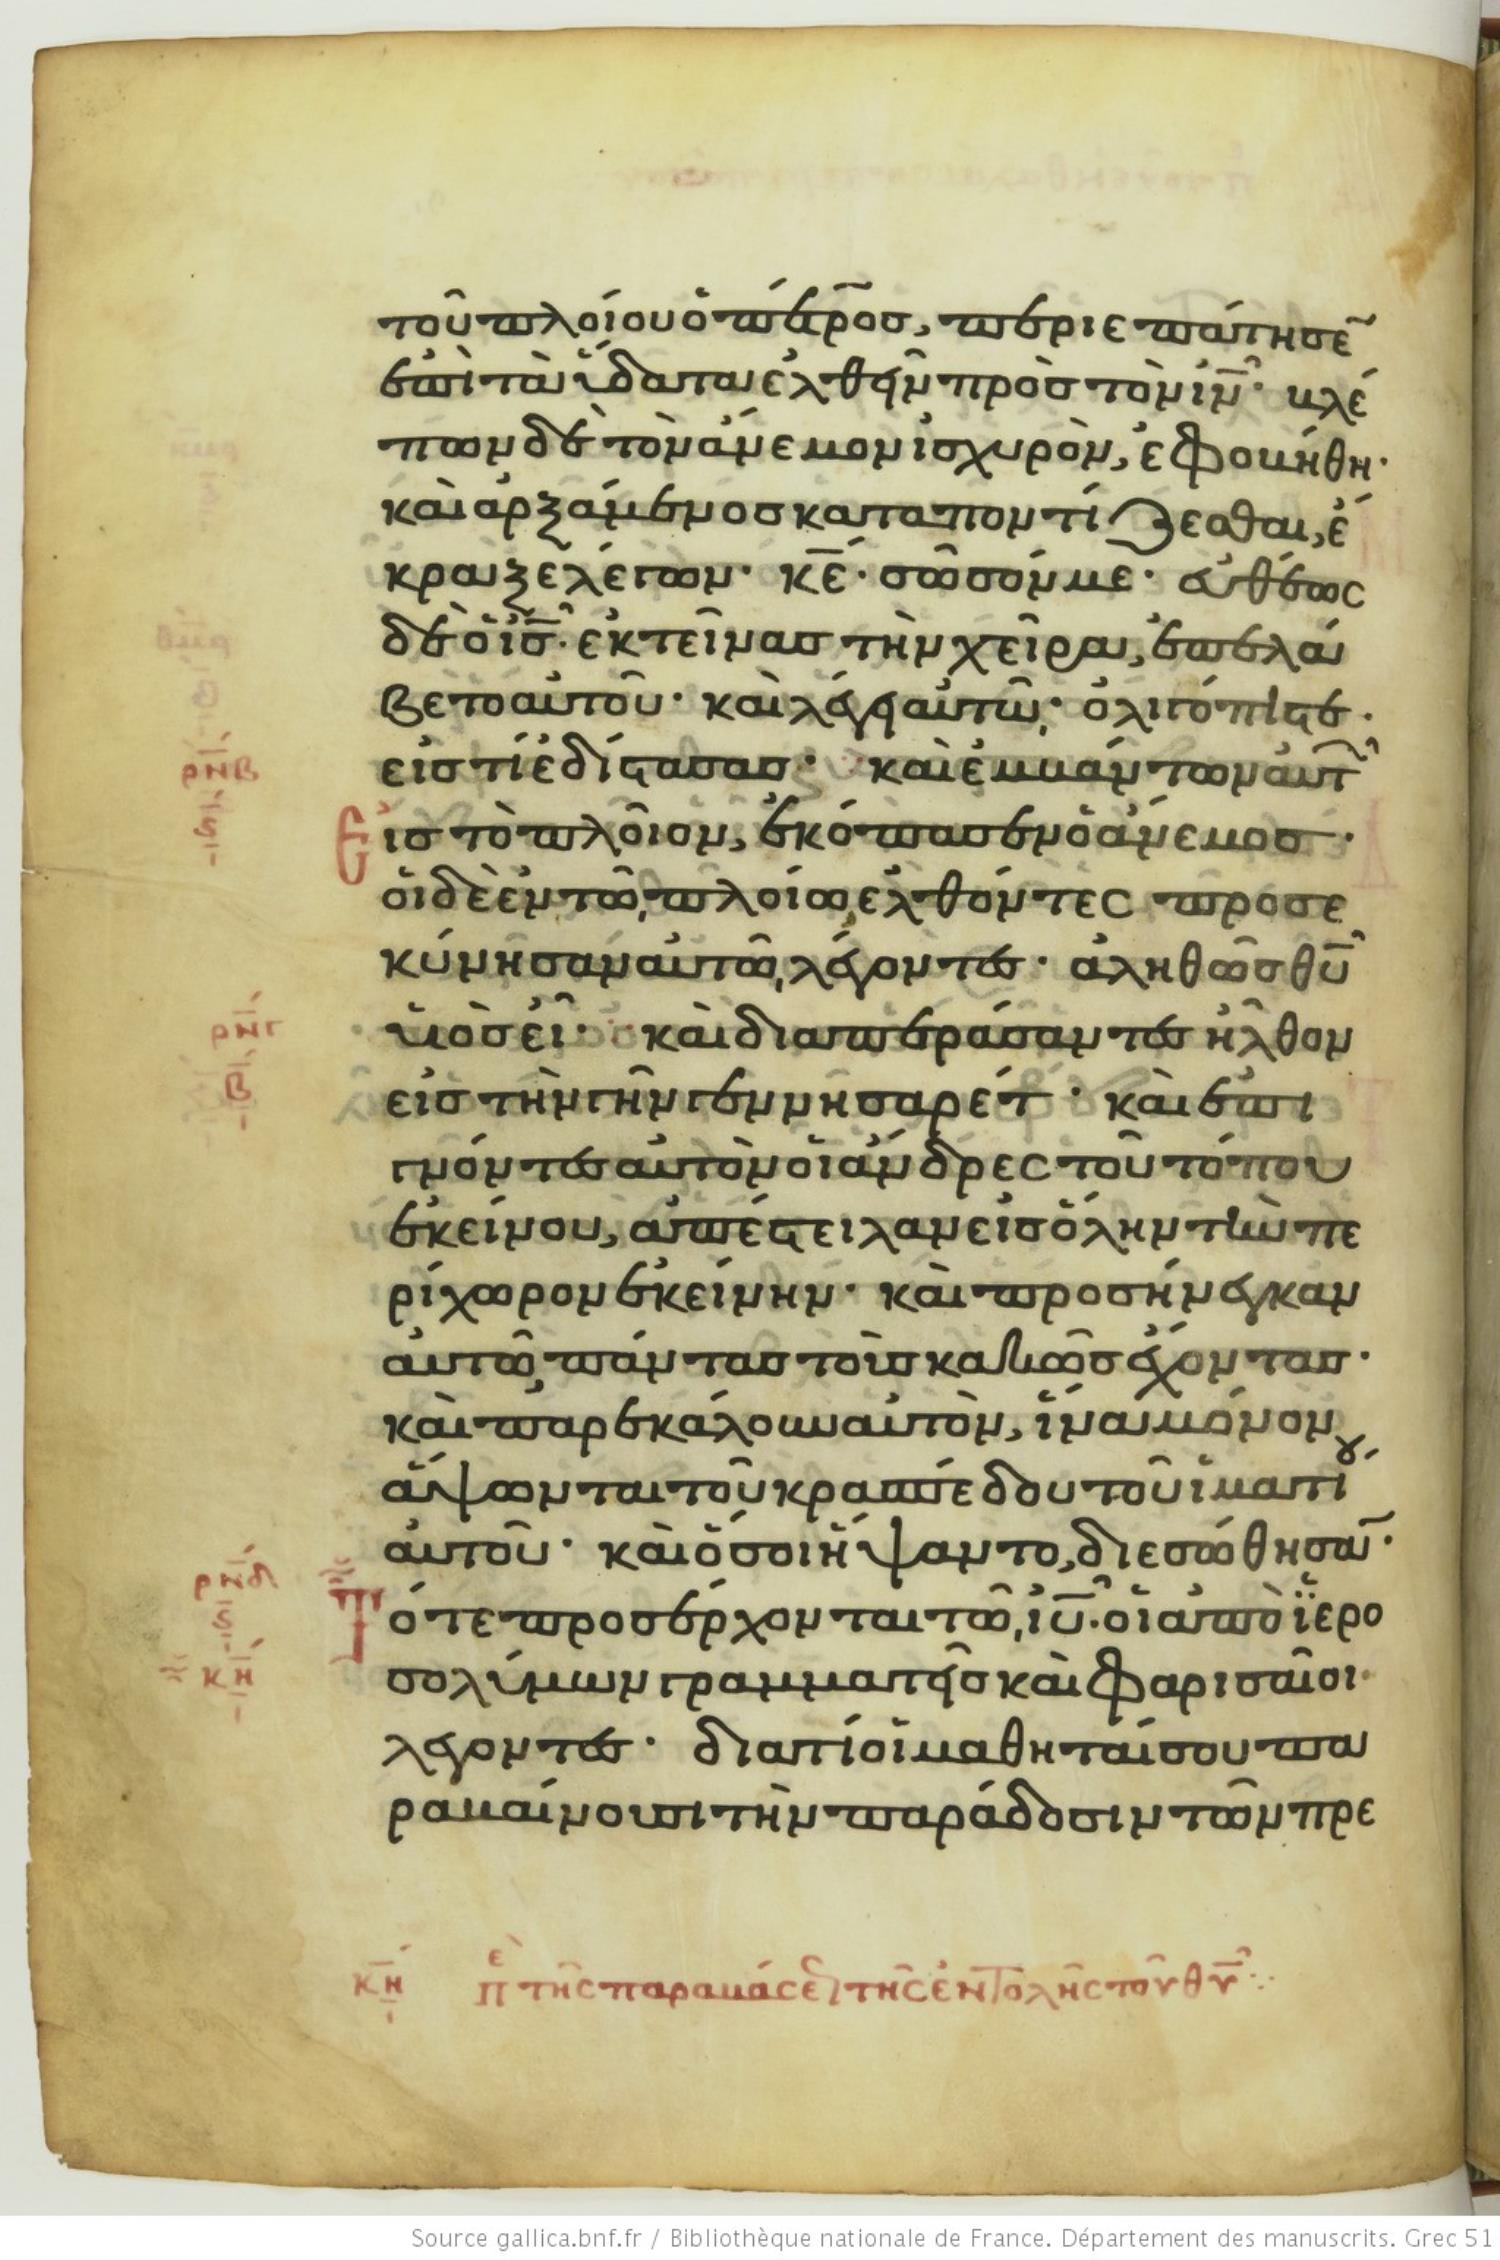 τοῦ πλοίου ὁ πέτρος, περιεπάτησε̃
ἐπὶ τὰ ὕδατα ἐλθεῖν πρὸς τὸν ἰν̅· βλέ
πων δὲ τὸν ἄνεμον ἰσχυρὸν, ἐφοβήθη·
καὶ ἀρξάμενος καταποντίζεσθαι, ἔ
κραξε λέγων· κ̅ε̅· σῶσόν με· εὐθέως
δὲ ὁ ἰ̅ς̅· ἐκτεῖνας τὴν χεῖρα, ἐπελά
βετο αὐτοῦ· καὶ λέγει αὐτῶ· ὀλιγόπιστε·
εἰς τί ἐδίστασας· καὶ ἐμβάντων αὐτ῀
ρνβ
ς
εἰς τὸ πλοῖον, ἐκόπασεν ὁ ἄνεμος·
οἱ δὲ ἐν τῶ πλοίω ἐλθόντες προσε
κύνησαν αὐτῶ λέγοντες· ἀληθῶς θ̅υ̅
υἱὸς εἶ· καὶ διαπεράσαντες ἦλθον
ρνγ
β
εἰς τὴν γῆν γεννησαρέτ· καὶ ἐπι
γνόντες αὐτὸν οἱ ἄνδρες τοῦ τόπου
ἐκείνου, ἀπέστειλαν εἰς ὅλην τὴν πε
ρίχωρον ἐκείνην· καὶ προσήνεγκαν
αὐτῶ πάντας τοὺς κακῶς ἔχοντας·
καὶ παρεκάλουν αὐτὸν, ἵνα μόνον
ἅψωνται τοῦ κρασπέδου τοῦ ἱματίου
αὐτοῦ· καὶ ὅσοι ἥψαντο, διεσώθησα̃·
ρνδ
ς
κη
Τότε προσέρχονται τῶ ἰ̅υ̅· οἱ ἀπὸ ἱερο
σολύμων γραμματεῖς καὶ φαρισαῖοι·
λέγοντες· διατί οἱ μαθηταί σου πα
ραβαίνουσι τὴν παράδοσιν τῶν πρε
κη πε τῆς παραβάσε τῆς ἐντολῆς τοῦ θ̅υ̅
Source gallica.bnf.fr / Bibliothèque nationale de France. Département des manuscrits. Grec 51